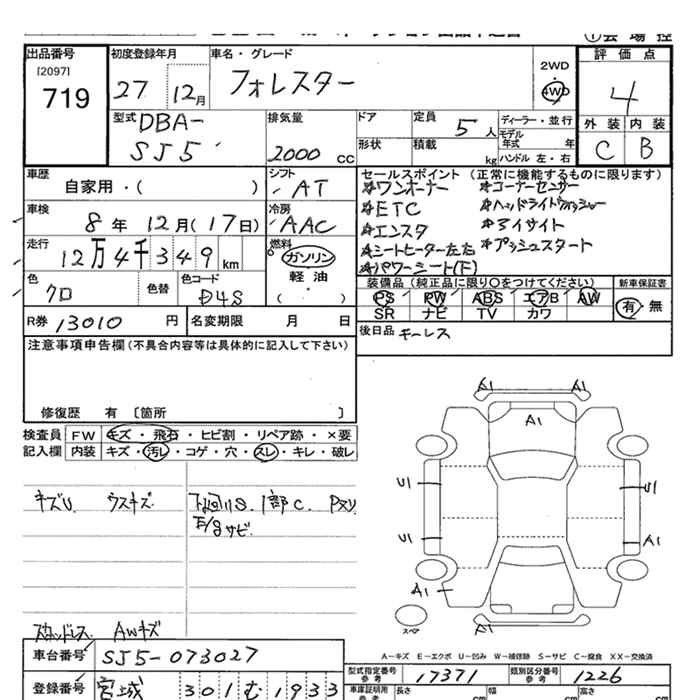 出品番号
[2097]
719
初度登録年月
27 12月
車名・グレード
フォレスター
2WD
4WD
評価点
4
外装 内装
C B
型式 DBA-
SJ5
排気量
2000 CC
ドア
形状
定員 5人
積載 kg
ディーラー・並行
モデル年式 年
ハンドル 左・右
車歴
自家用・( )
シフト
AT
車検
8年12月(17日)
冷房
AAC
走行
12万4千349km
燃料
ガソリン
軽油
( )
色
クロ
色替
色コード
D4S
R券 13010 円
名変期限 月 日
セールスポイント (正常に機能するものに限ります)
☆ワンオーナー ☆コーナーセンサー
☆ETC ☆ヘッドライトウォッシャー
☆エンスタ ☆アイサイト
☆シートヒーター左右 ☆プッシュスタート
☆パワーシート(F)
装備品 (純正品に限り○をつけてください)
PS PW ABS エアB AW
SR ナビ TV カワ
新車保証書
有・無
後日品 キーレス
注意事項申告欄(不具合内容等は具体的に記入して下さい)
修復歴 有 [箇所 ]
検査員 FW キズ・飛石・ヒビ割・リペア跡・×要
記入欄 内装 キズ・汚レ・コゲ・穴・スレ・キレ・破レ
キズU ウスキズ
下回りS. 1部C.
E/gサビ
スタッドレス AWキズ
A1 A1
A1
U1 U1
U1 A1
A1
A1
スペア
A-キズ E-エクボ U-凹み W-補修跡 S-サビ C-腐食 XX-交換済
車台番号 SJ5-073027
登録番号 宮城 301 む 1933
型式指定番号 参考 17371
類別区分番号 参考 1226
車庫証明用 参考 長さ cm 幅 cm 高さ cm